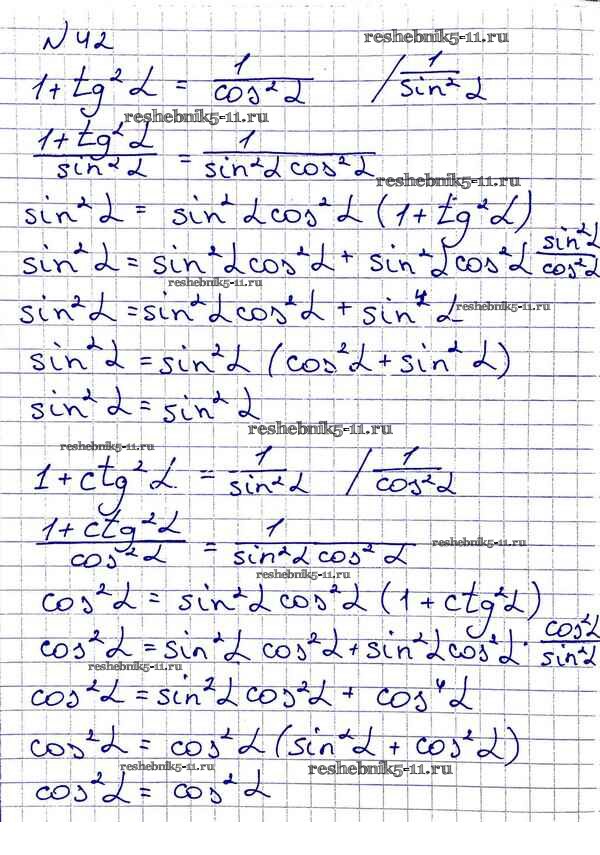 N 42 reshebnik5-11.ru
1 + tg² α = 1/cos² α / 1/sin² α
reshebnik5-11.ru
(1 + tg² α)/(sin² α) = 1/(sin² α cos² α)
reshebnik5-11.ru
sin² α = sin² α cos² α (1 + tg² α)
sin² α = sin² α cos² α + sin² α cos² α sin² α/cos² α
reshebnik5-11.ru
sin² α = sin² α cos² α + sin⁴ α reshebnik5-11.ru
sin² α = sin² α (cos² α + sin² α)
sin² α = sin² α
reshebnik5-11.ru
reshebnik5-11.ru
1 + ctg² α = 1/sin² α / 1/cos² α
(1 + ctg² α)/(cos² α) = 1/(sin² α cos² α) reshebnik5-11.ru
reshebnik5-11.ru
cos² α = sin² α cos² α (1 + ctg² α)
cos² α = sin² α cos² α + sin² α cos² α · cos² α/sin² α
reshebnik5-11.ru
cos² α = sin² α cos² α + cos⁴ α
cos² α = cos² α (sin² α + cos² α)
reshebnik5-11.ru reshebnik5-11.ru
cos² α = cos² α